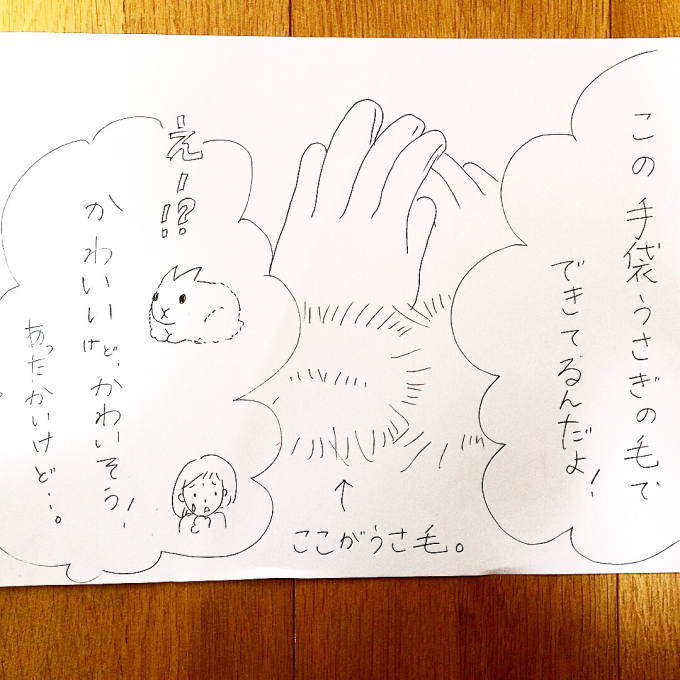 この手袋うさぎの毛で
できてるんだよ!
えー!?
かわいいけど、かわいそう!
あったかいけど…。
ここがうさ毛。